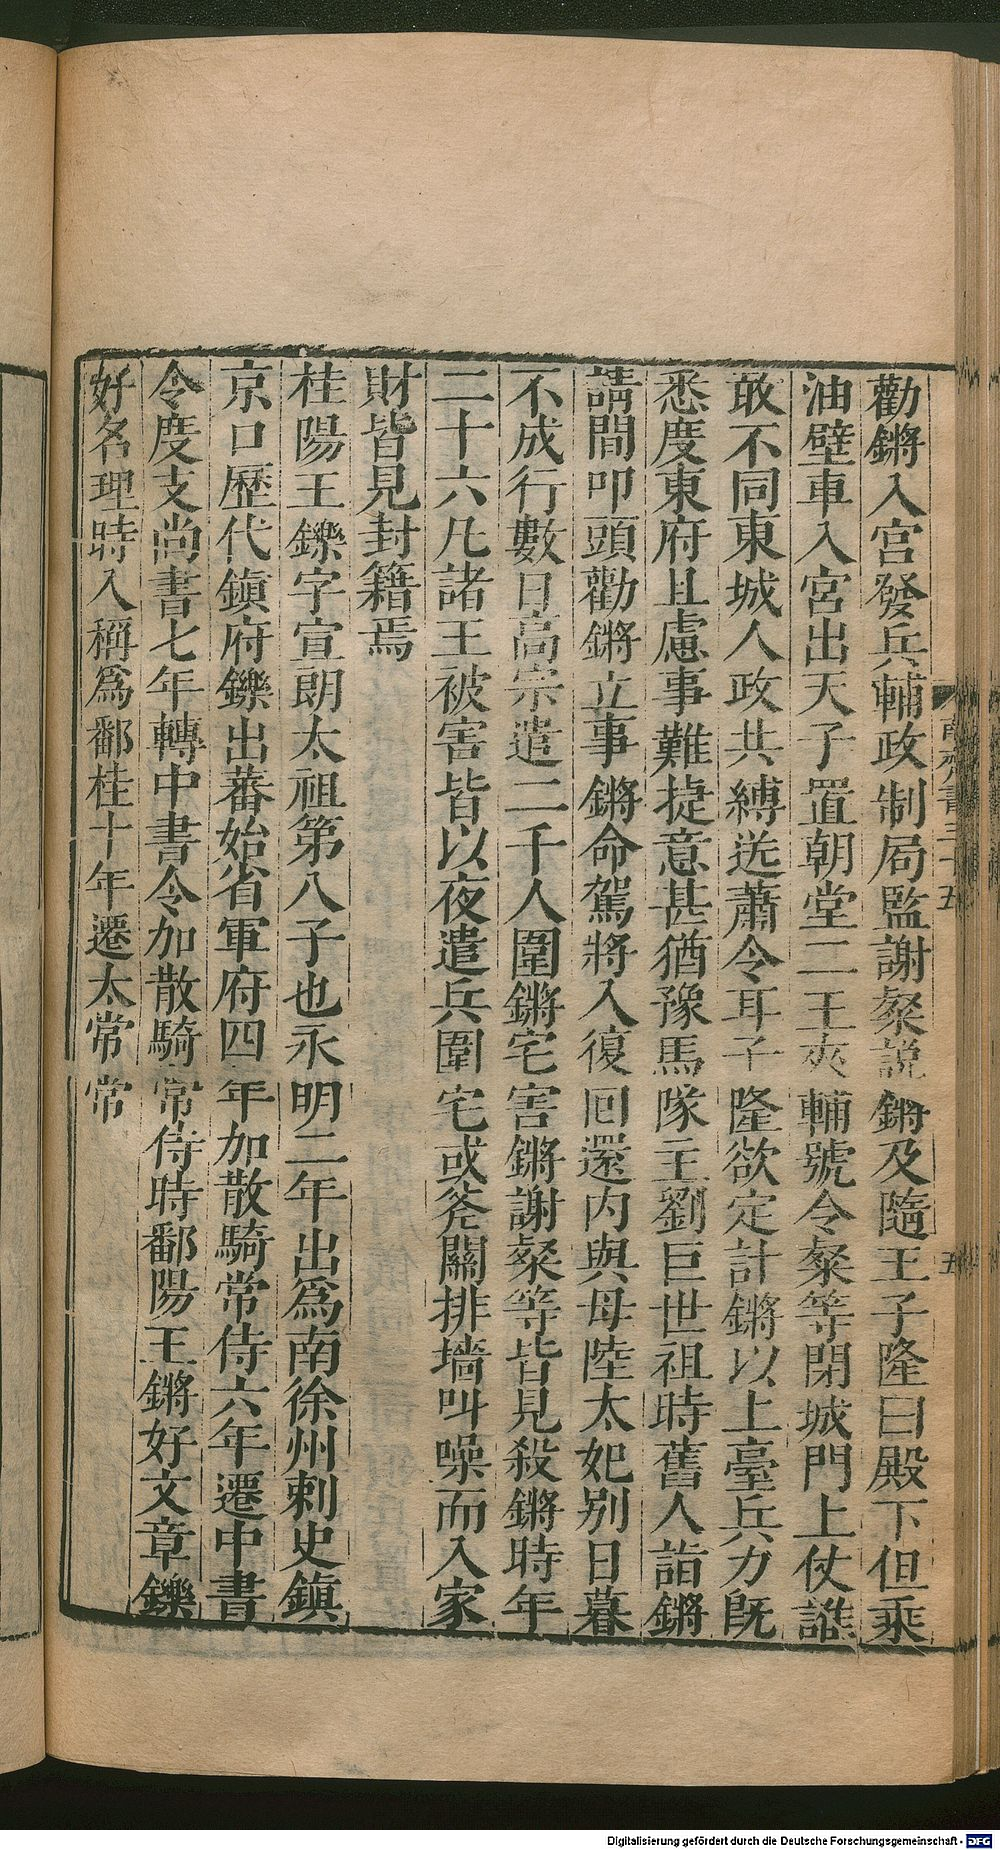 勸鏘入宮發兵輔政制局監謝粲説鏘及隨王子隆曰殿下但乘
油壁車入宮出天子置朝堂二王夾輔號令粲等閉城門上仗誰
敢不同東城人政共縛送蕭令耳子隆欲定計鏘以上臺兵力旣
悉度東府且慮事難捷意甚猶豫馬隊主劉巨世祖時舊人詣鏘
請間叩頭勸鏘立事鏘命駕將入復回還内與母陸太妃别日暮
不成行數日高宗遣二千人圍鏘宅害鏘謝粲等皆見殺鏘時年
二十六凡諸王被害皆以夜遣兵圍宅或斧關排墻叫噪而入家
財皆見封籍焉
桂陽王鑠字宣朗太祖第八子也永明二年出爲南徐州刺史鎮
京口歷代鎮府鑠出蕃始省軍府四年加散騎常侍六年遷中書
令度支尚書七年轉中書令加散騎常侍時鄱陽王鏘好文章鑠
好名理時人稱爲鄱桂十年遷太常常
五
Digitalisierung gefördert durch die Deutsche Forschungsgemeinschaft - DFG